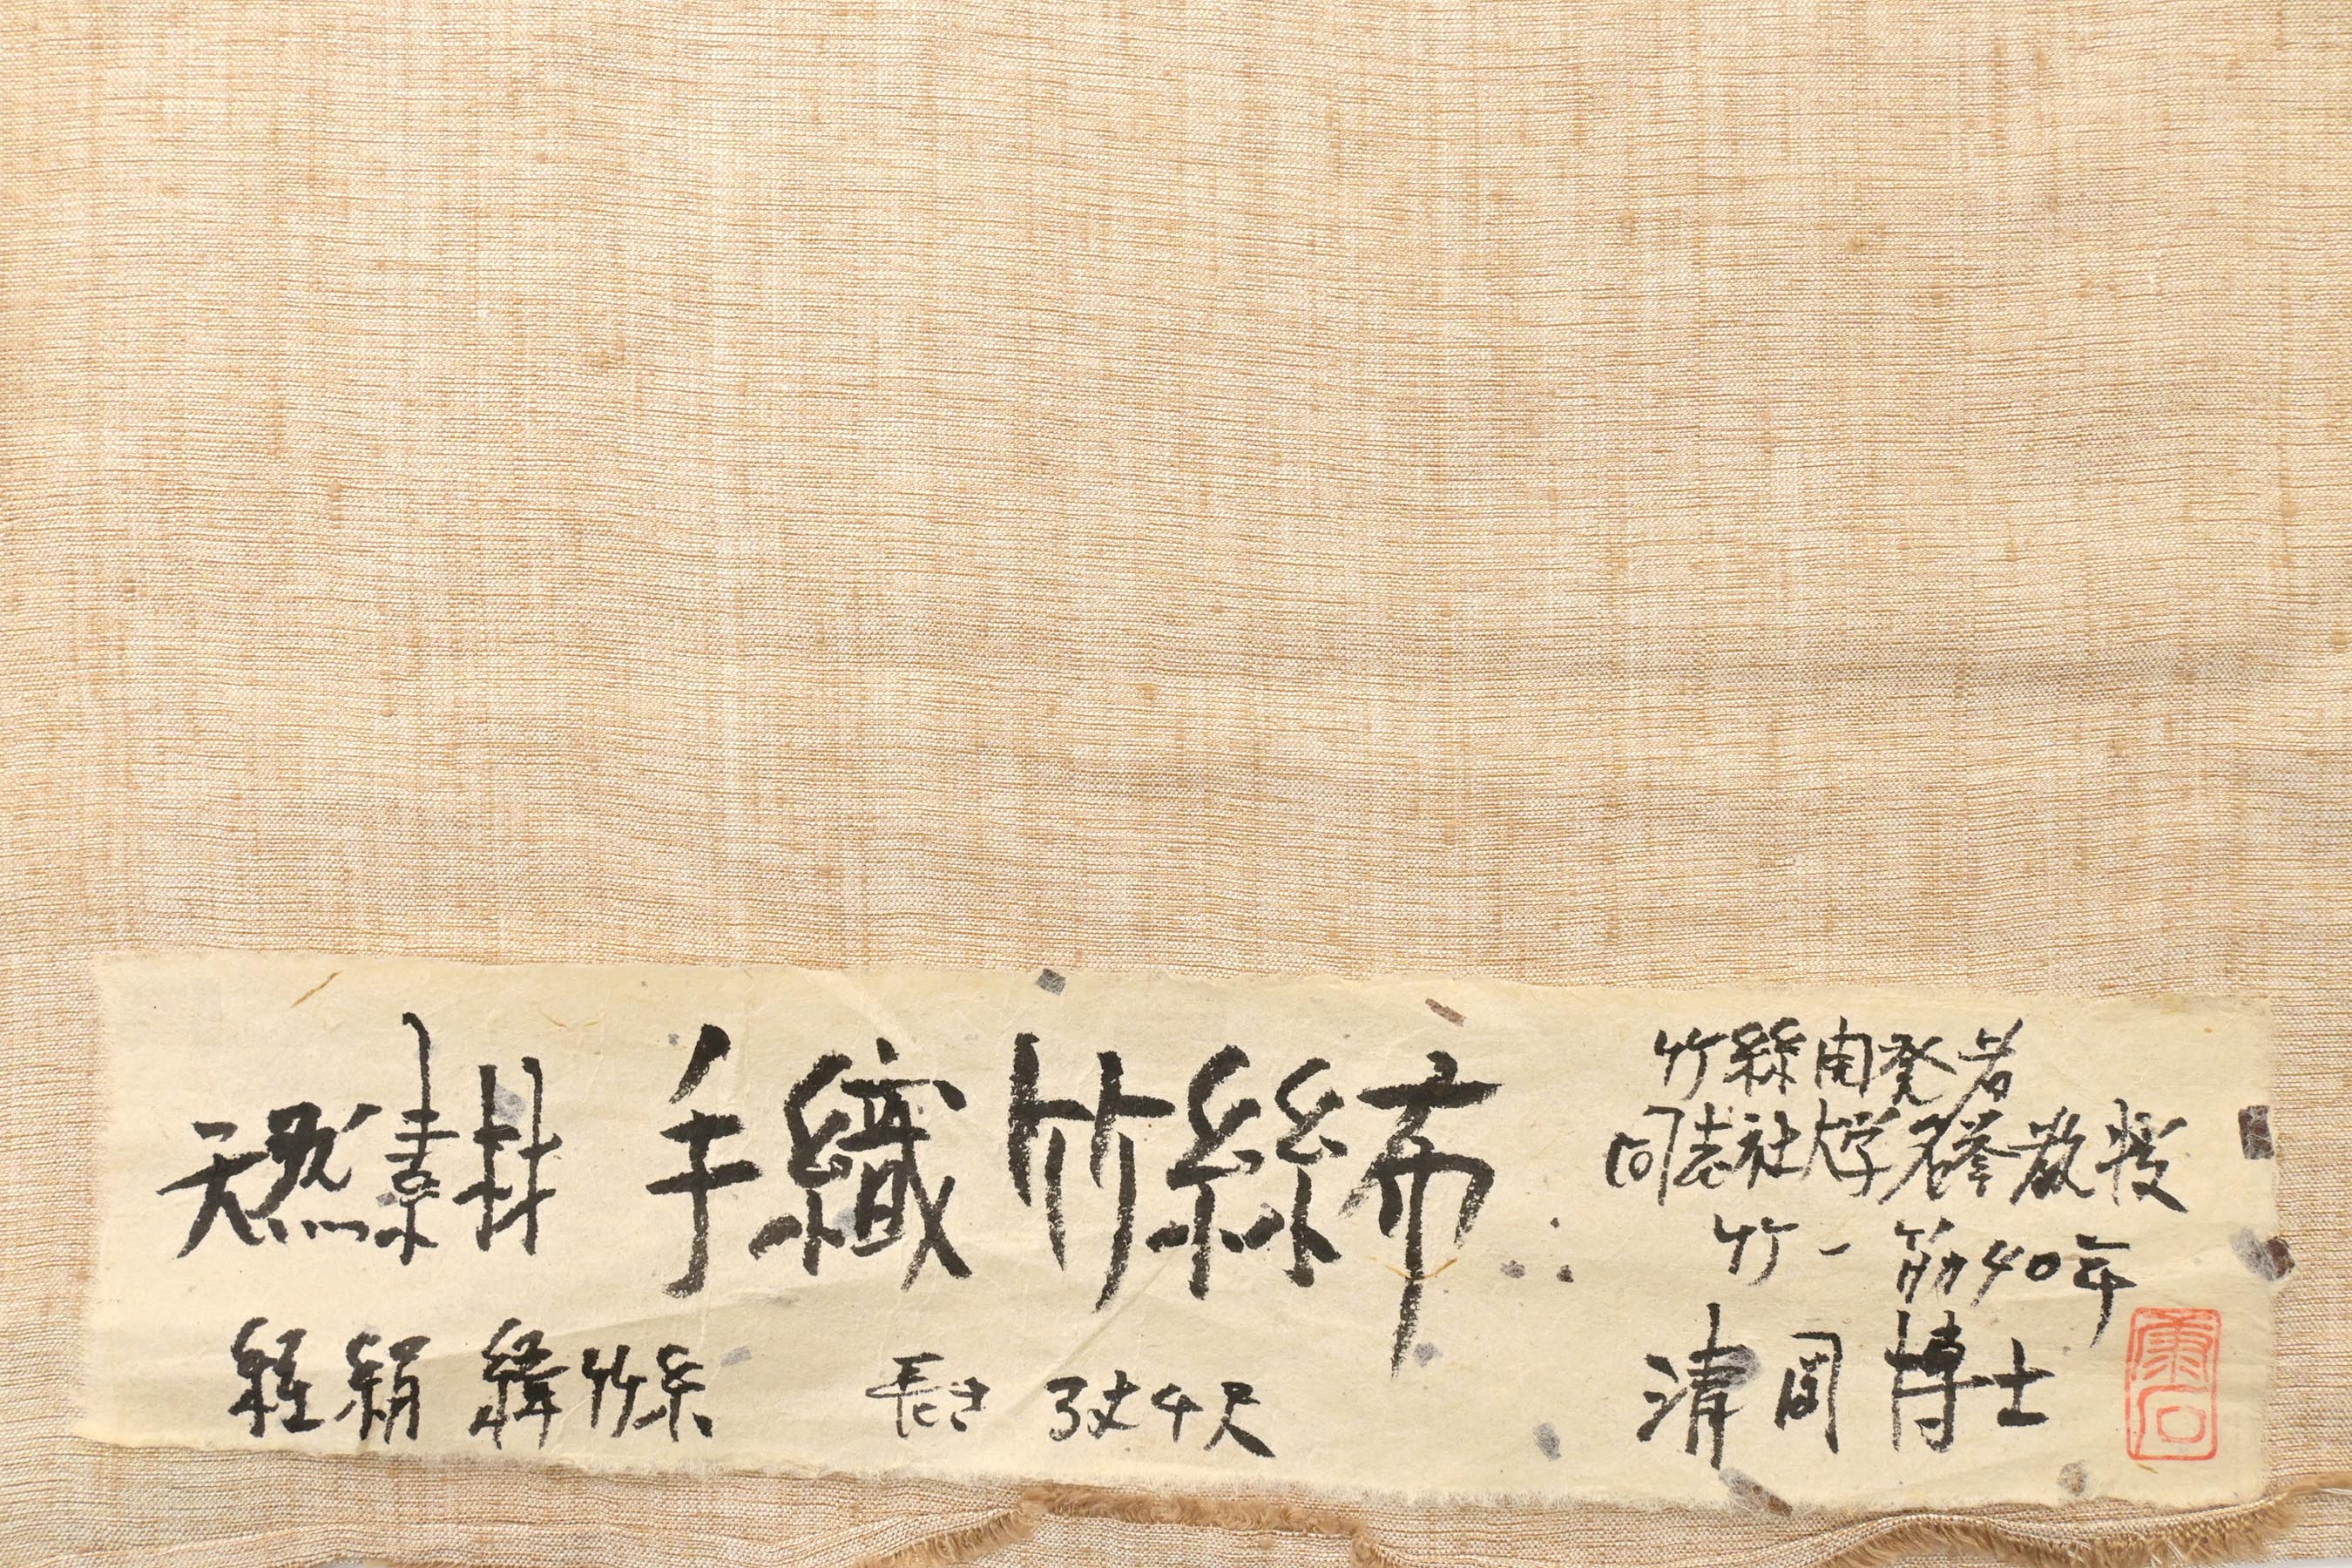 天然素材 手織竹絲布
経絹 緯竹糸 長さ 3丈4尺
竹絲開発者
同志社大学名誉教授
竹一筋40年
博士